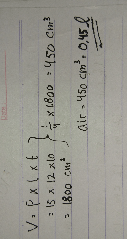 V = P x l x t } 1/4 x 1800 = 450 cm³
= 15 x 12 x 10
= 1800 cm³
air = 450 cm³ = 0,45 l